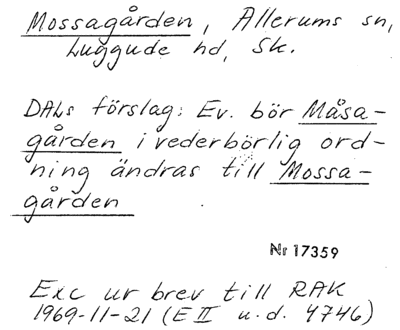 Mossagården, Allerums sn,
Luggude hd, Sk.
DALs förslag: Ev. bör Måsa-
gården i vederbörlig ord-
ning ändras till Mossa-
gården
Nr 17359
Exc ur brev till RAK
1969-11-21 (E II u.d. 4746)